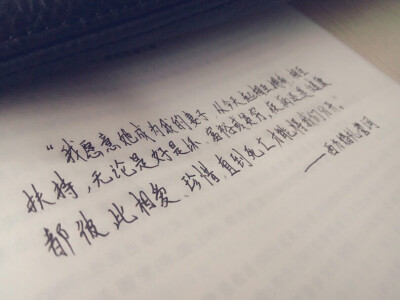 “我愿意她成为我的妻子，从今天起相互拥有、相互
扶持，无论是好是坏、富裕或贫穷、疾病还是健康
都彼此相爱、珍惜，直到死亡才能将我们分开。
——西方婚礼誓词